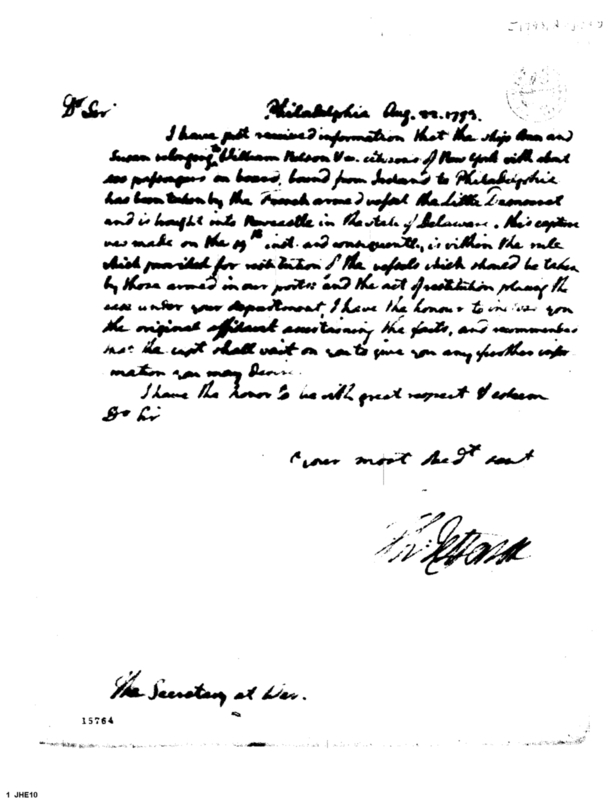 Dr Sir
Philadelphia Aug. 22. 1793.
I have just received information that the ship Ann and
Susan belonging to William Nelson & co. citizens of New York with about
passengers on board, bound from Ireland to Philadelphia
has been taken by the French armed vessel the Little Democrat
and is brought into Newcastle in the state of Delaware. this capture
was made on the 19th inst. and consequently is within the rule
which provided for restitution of the vessels which should be taken
by those armed in our ports: and the act of restitution placing the
case under your department, I have the honour to inclose you
the original affidavit ascertaining the facts, and recommended
that the capt shall wait on you to give you any further infor-
mation you may desire.
I have the honor to be with great respect & esteem
Dr Sir
Your most obedt servt
Th: Jefferson
The Secretary at War.
15764
1 JHE10